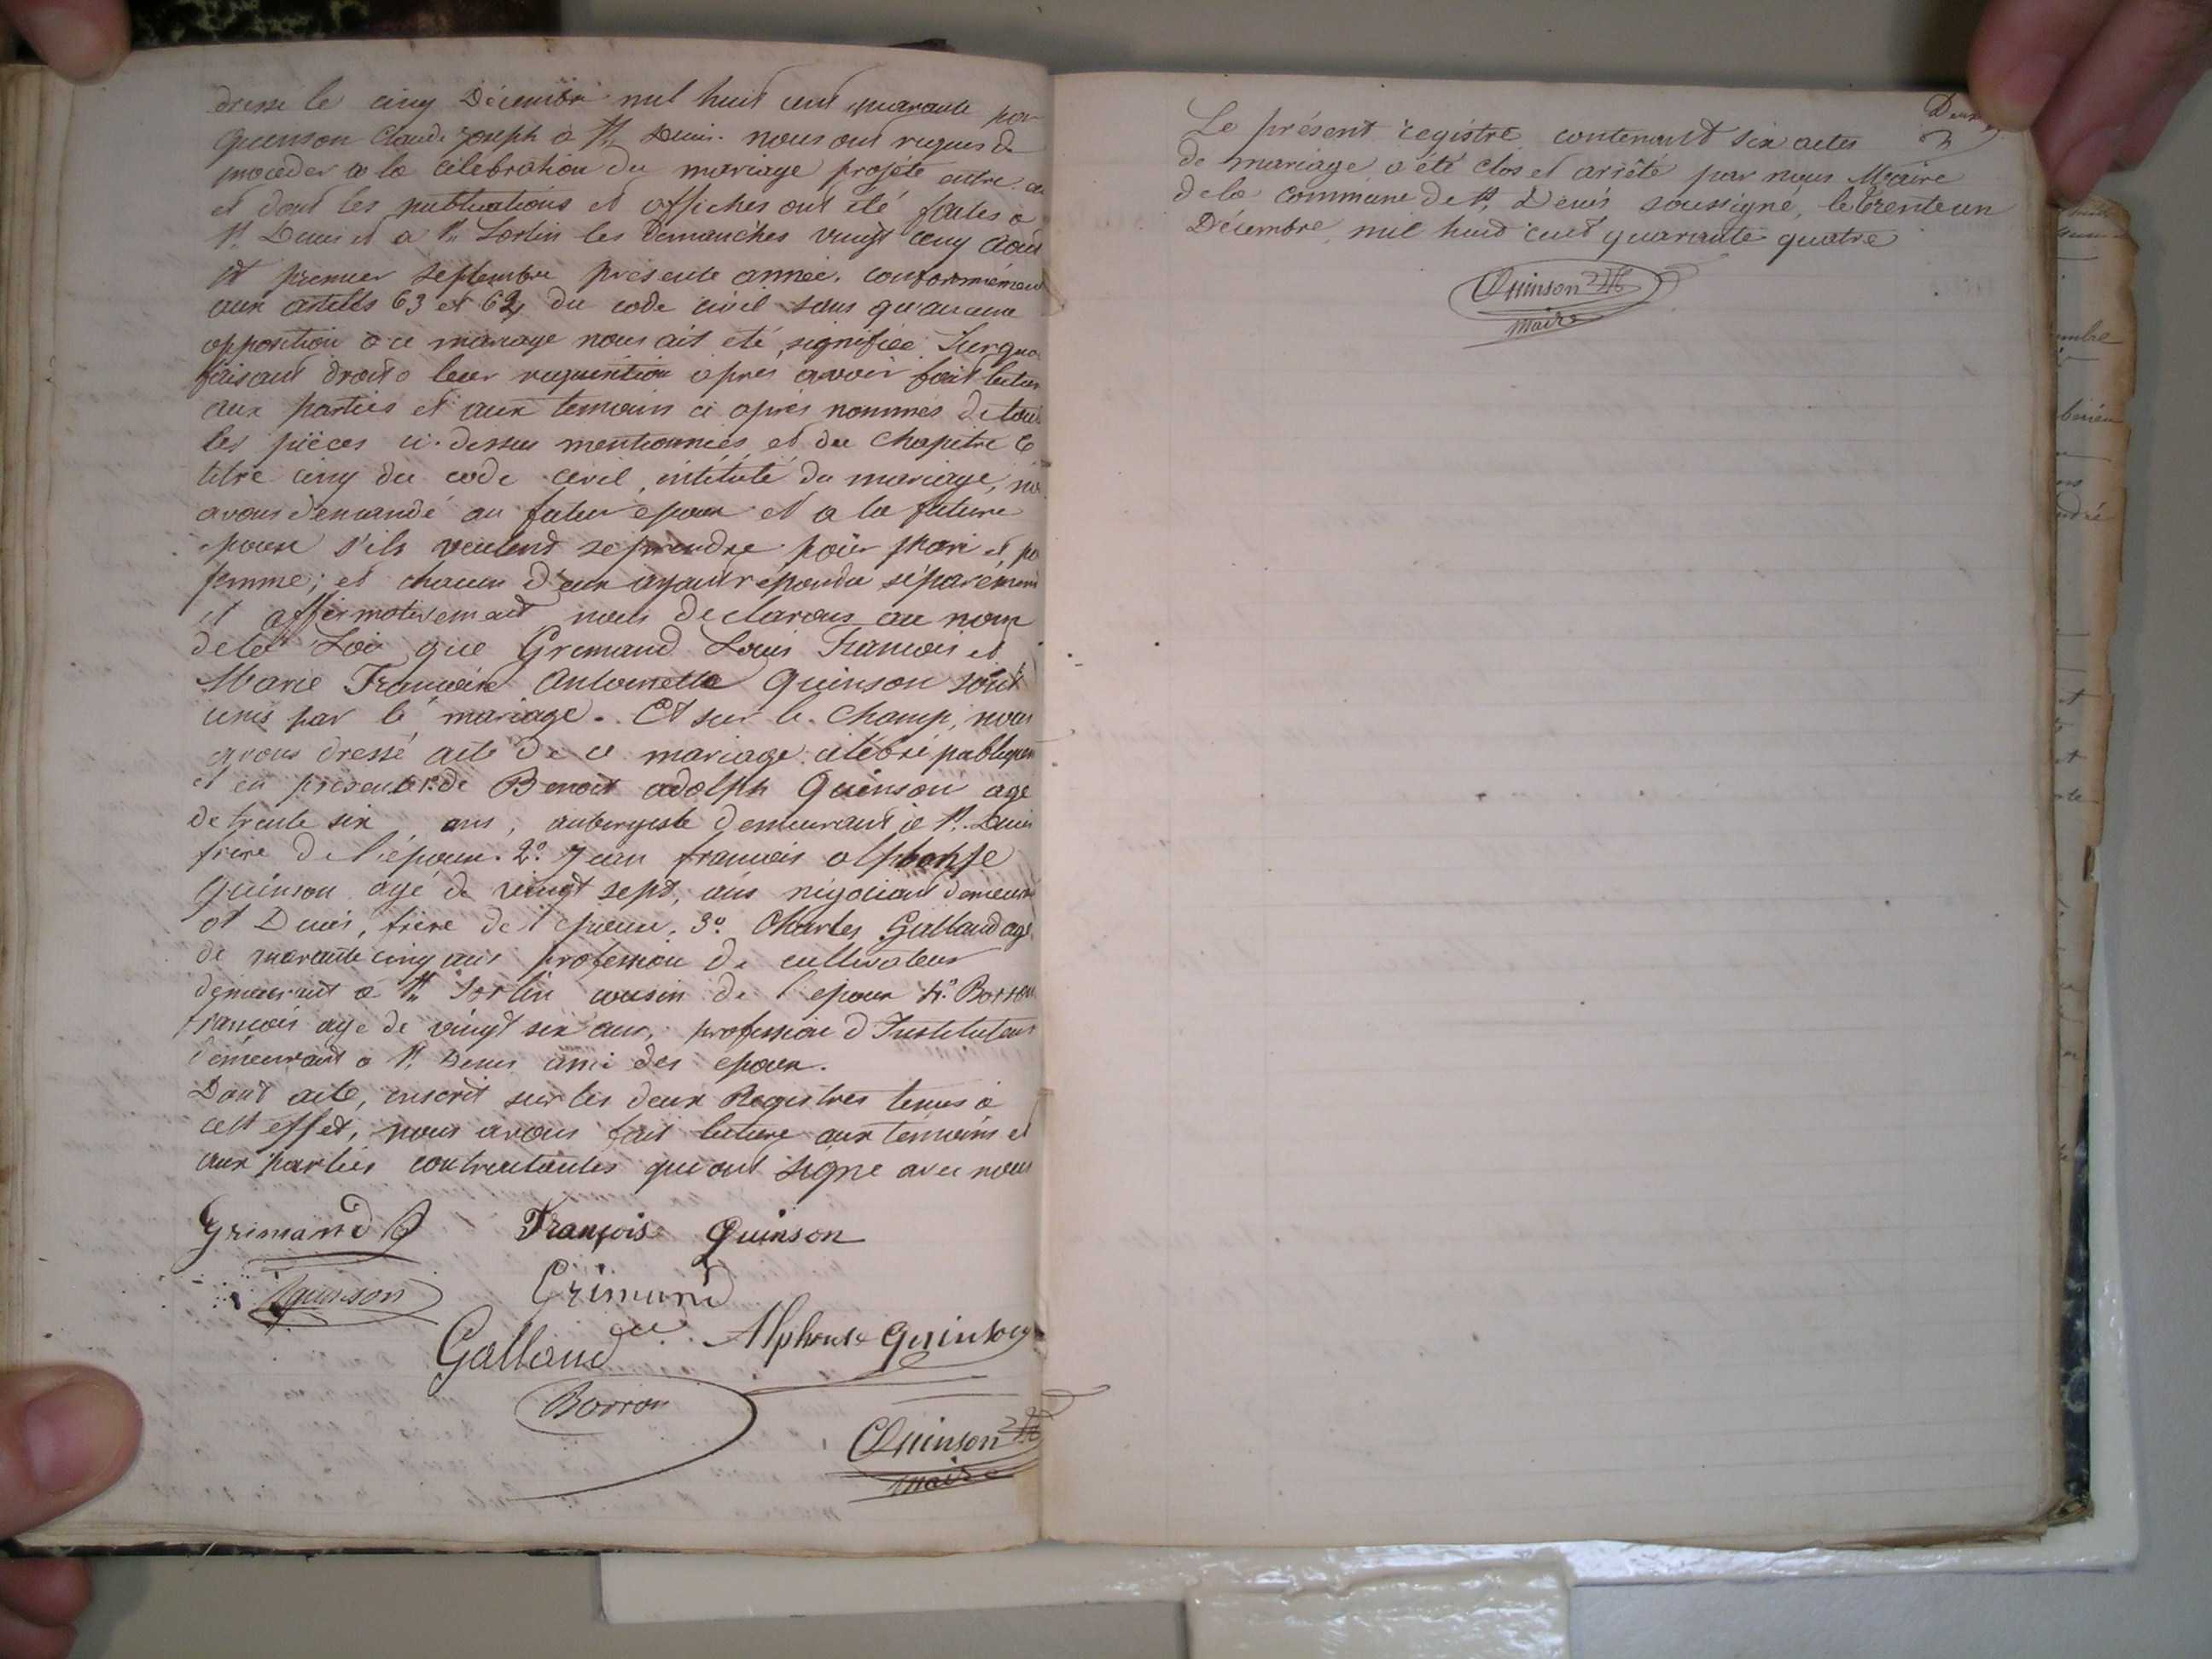 dressé le cinq Décembre mil huit cent quarante par
Quinson Claude Joseph à St Denis. nous ont requis de
procéder à la célébration du mariage projété entre eux
et dont les publications et affiches ont été faites à
St Denis et à St Sorlin les Dimanches vingt cinq Aout
et premier septembre présente année. conformément
aux articles 63 et 64 du code civil sans qu'aucune
opposition à ce mariage nous ait été signifiée. Surquoi
faisant droit à leur requisition après avoir fait lecture
aux parties et aux temoins ci après nommés de tout
les pièces ci-dessus mentionnées et du Chapitre 6
titre cinq du code civil, intitulé du mariage, no
avons demandé au futur époux et a la future
epouse s'ils veulent se prendre pour mari et po
femme; et chacun d'eux ayant répondu séparément
et affirmativement nous declarons au nom
de la Loi que Grimand Louis Francois et
Marie Francoise Antoinette Quinson sont
unis par le mariage. Et sur le champ, nous
avons dressé acte de ce mariage célébré publiquem
et en présence 1° de Benoit adolph Quinson agé
de trente six ans, aubergiste demeurant à St. Denis
frère de l'épouse. 2° Jean francois alphonse
Quinson agé de vingt sept, ans négociant demeura
St Denis, frère de l'épouse, 3° Charles Galland agé
de quarante cinq ans profession de cultivateur
demeurant à St Sorlin cousin de l'epoux 4° Borron
françois agé de vingt six ans, profession d'Instituteur
demeurant à St. Denis ami des epoux.
Dont acte, inscrit sur les deux Registres tenus à
cett effet, nous avons fait lecture aux témoins et
aux parties contractantes qui ont signé avec nous
Grimand François Quinson
Quinson Grimand
Galland Alphonse Quinson
Borron
Quinson
maire
Deux
Le présent registre contenant six actes
de mariage a été clos et arrêté par nous Maire
de la commune de St. Denis soussigné, le trente un
Décembre mil huit cent quarante quatre
Quinson
maire